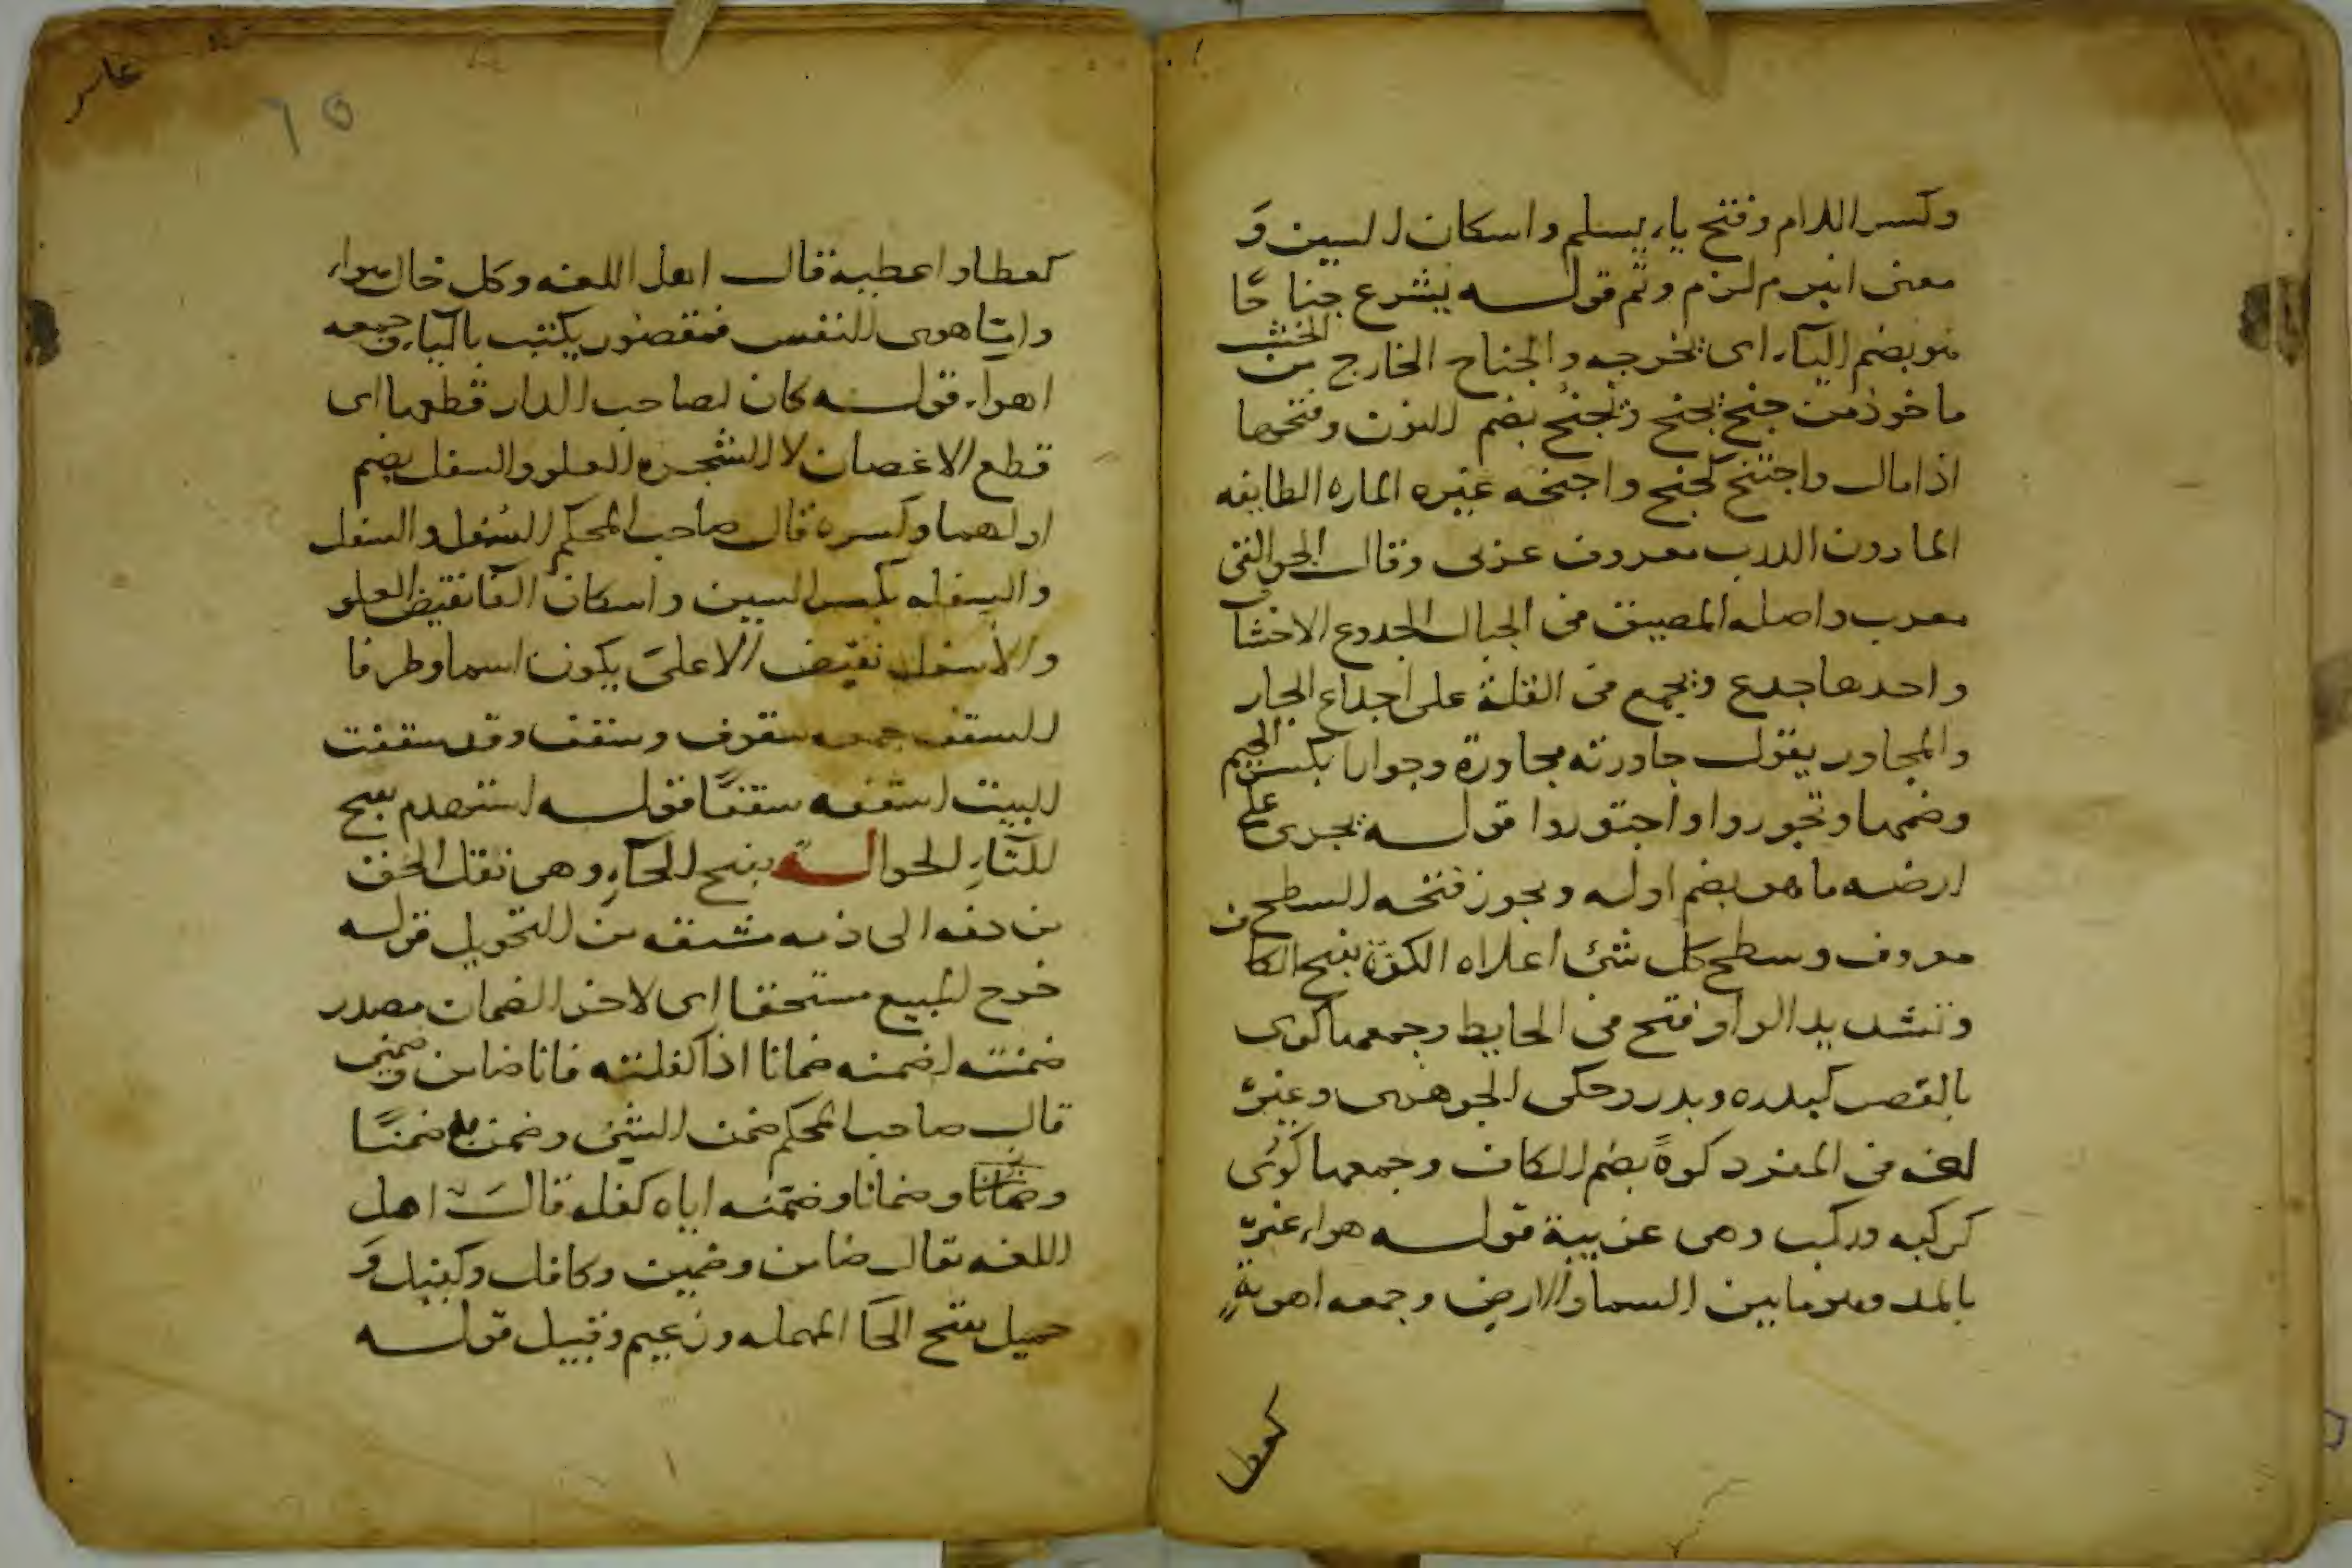 وكسر اللام وفتح ياء يسلم واسكان السين و
معنى انبرم لزم وتم قوله يشرع جناحا
هو بضم الياء اى يخرجه والجناح الخارج من الخشب
ماخوذ من جنح يجنح ويجنح بضم النون وفتحها
اذا مال واجتنح كجنح واجنحه غيره الماره الطايفه
المارون الدرب معروف عربى وقال الجواليقى
معرب واصله المضيق فى الجبال الجدوع الاخشاب
واحدها جدع ويجمع فى القلة على اجداع الجار
والمجاور يقول جاورته مجاورة وجوارا بكسر الجيم
وضمها وتجوروا واجتوروا قوله يجرى على
ارضه ما هو بضم اوله ويجوز فتحه السطح
معروف وسطح كل شئ اعلاه الكوة بفتح الكا
وتشديد الواو فتح فى الحايط وجمعها كوى
بالقصر كبدره وبدر وحكى الجوهرى وغيره
لغه فى المفرد كوة بضم الكاف وجمعها كوى
كركبه وركب وهى غريبة قوله هواء غيره
بالمد وهو ما بين السما والارض وجمعه اهوية
كعطا
٦٥
كعطا واعطية قال اهل اللغه وكل خال هواء
واما هوى النفس فمقصور يكتب بالياء وجمعه
اهواء قوله كان لصاحب الدار قطعها اى
قطع الاغصان لا الشجره العلو والسفل بضم
اولهما وكسره قال صاحب المحكم السفل والسفل
والسفله بكسر السين واسكان الفا نقيض العلو
والاسفل نقيض الاعلى يكون اسما وظرفا
السقف جمعه سقوف وسقف وقد سقفت
البيت اسقفه سقفا قوله استهدم بفتح
التاء الحوالة بفتح الحاء وهى نقل الحق
من دمه الى ذمه مشتقه من التحويل قوله
خرج المبيع مستحقا اى لاخر الضمان مصدر
ضمنته اضمنه ضمانا اذا كفلته فانا ضامن وضمين
قال صاحب المحكم ضمن الشئ وضمن به ضمنا
وضمانا وضمانا وضمنه اياه كفله قالت اهل
اللغه يقال ضامن وضمين وكافل وكفيل و
حميل بفتح الحا المهمله وزعيم وقبيل قوله